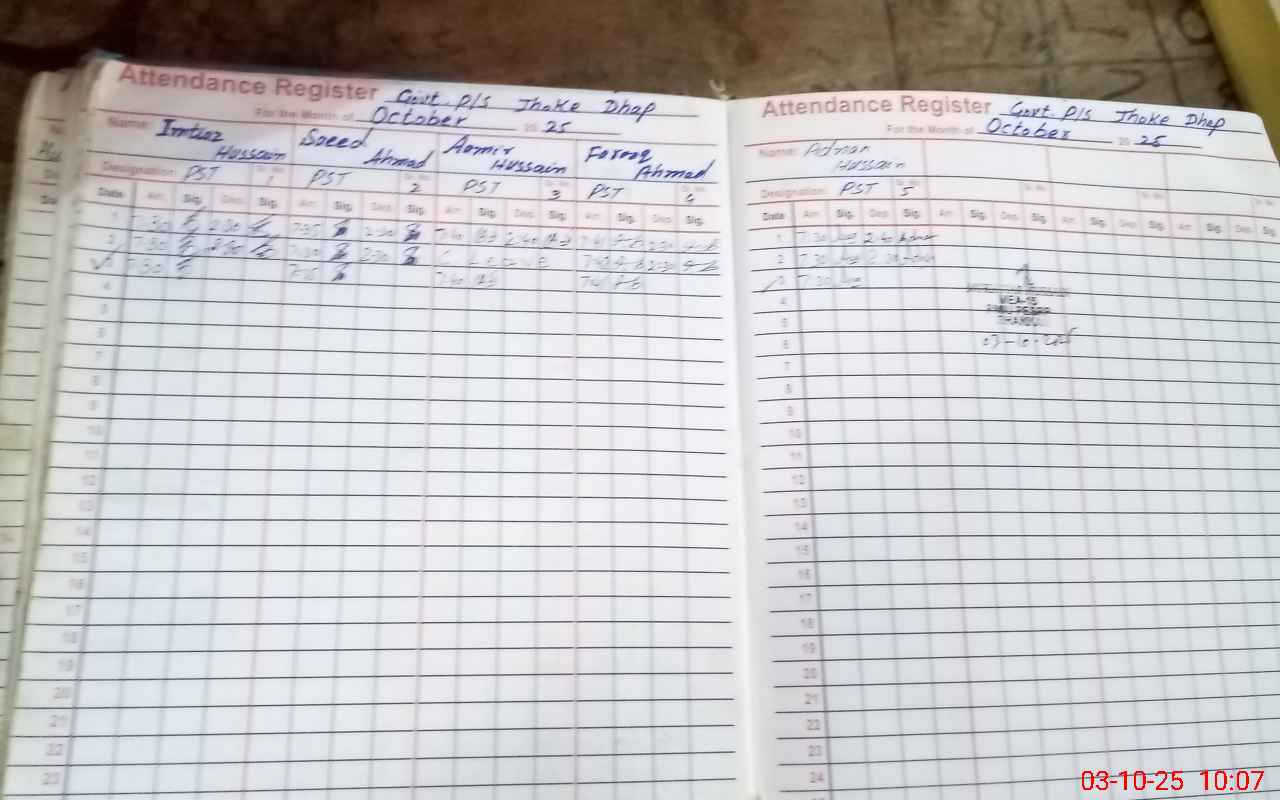 Attendance Register Govt. P/S Jhoke Dhap
For the Month of October 20 25
Name: Imtiaz Hussain Saeed Ahmad Aamir Hussain Farooq Ahmad
Designation: PST Sr. No. 1 PST 2 PST 3 PST 4
Date Arr. Sig. Dep. Sig. Arr. Sig. Dep. Sig. Arr. Sig. Dep. Sig. Arr. Sig. Dep. Sig.
1 7:30 2:30 7:35 2:30 7:40 2:40 7:41 2:30
2 7:30 2:30 7:30 2:30 C Leave 2:30
3 7:30 7:35 7:40
4
5
6
7
8
9
10
11
12
13
14
15
16
17
18
19
20
21
22
23
Attendance Register Govt. P/S Jhoke Dhap
For the Month of October 20 25
Name: Adnan Hussain
Designation: PST 5 Sr. No. Sr. No. Sr. No.
Date Arr. Sig. Dep. Sig. Arr. Sig. Dep. Sig. Arr. Sig. Dep. Sig. Arr. Sig. Dep. Sig.
1 7:30 2:40
2 7:30 2:30
3 7:30
4
5
6
7
8
9
10
11
12
13
14
15
16
17
18
19
20
21
22
23
24
MEA-15
03-10-2025
03-10-25 10:07